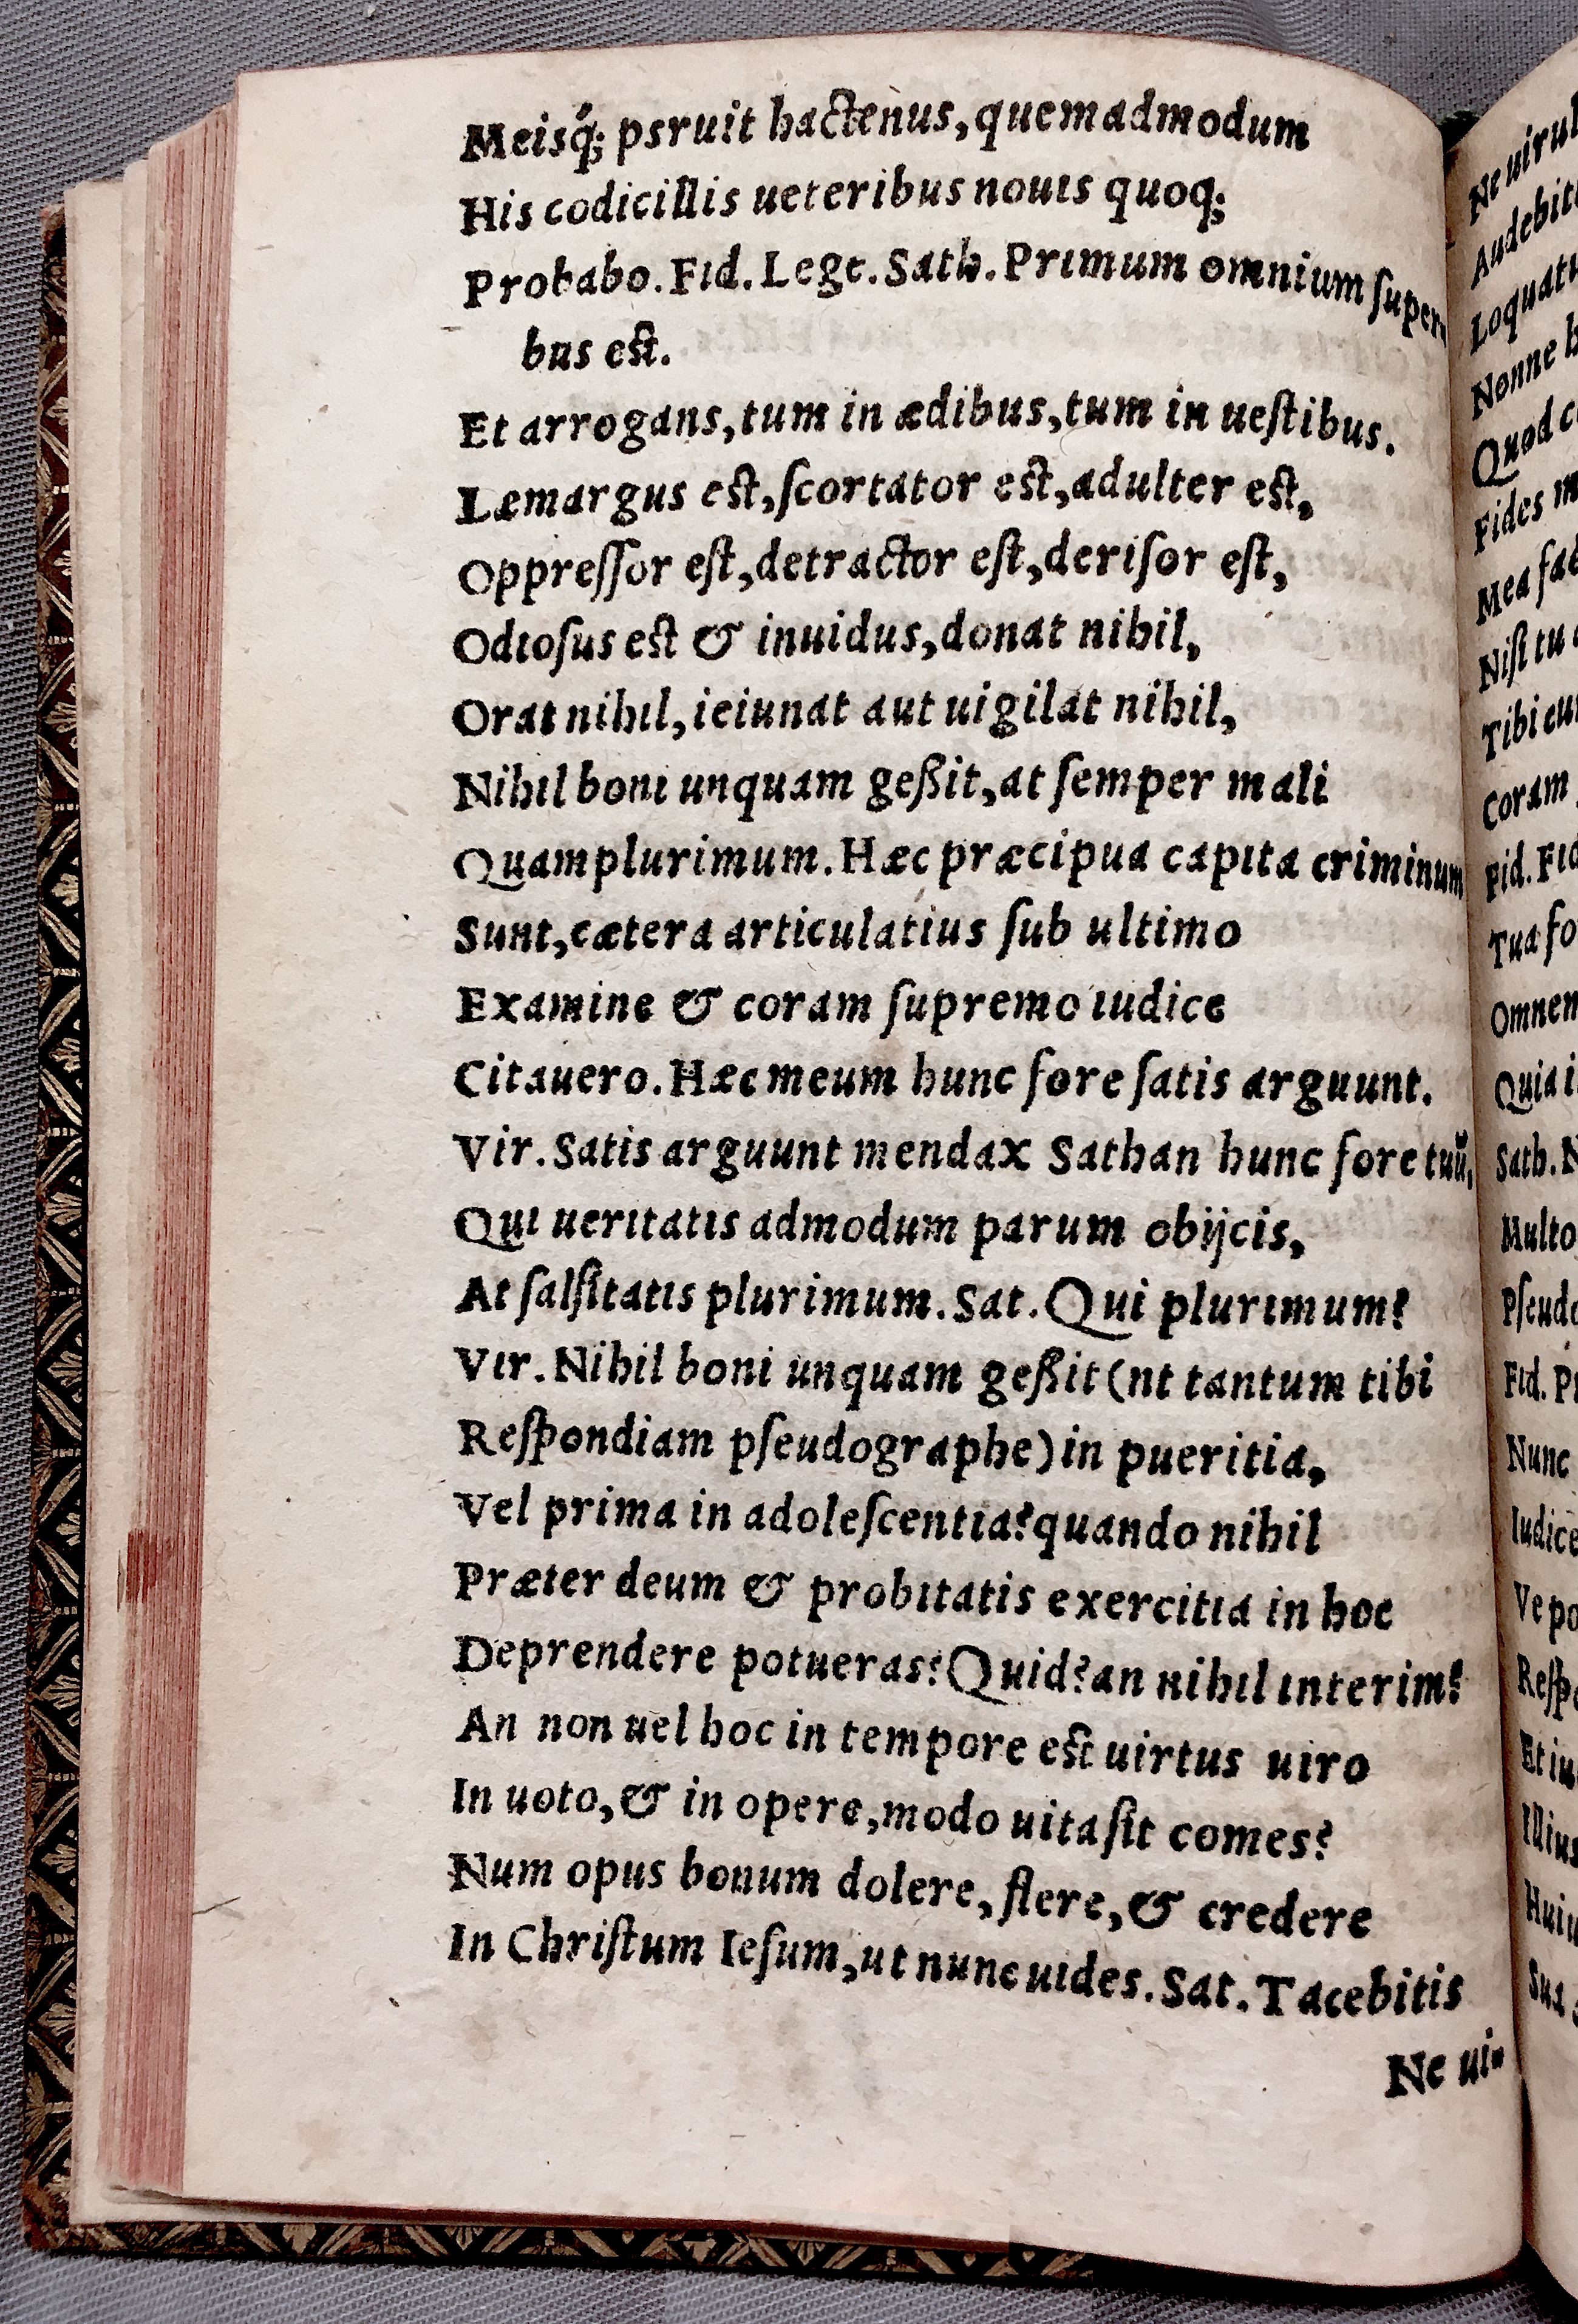 Meisq́; psruit hactenus, quemadmodum
His codicillis ueteribus nouis quoq;
Probabo. Fid. Lege. Sath. Primum omnium ſuper
bus eſt.
Et arrogans, tum in ædibus, tum in ueſtibus.
Læmargus eſt, ſcortator eſt, adulter eſt,
Oppreſſor eſt, detractor eſt, deriſor eſt,
Odioſus eſt & inuidus, donat nihil,
Orat nihil, ieiunat aut uigilat nihil,
Nihil boni unquam geßit, at ſemper mali
Quamplurimum. Hæc præcipua capita criminum
Sunt, cætera articulatius ſub ultimo
Examine & coram ſupremo iudice
Citauero. Hæc meum hunc fore ſatis arguunt.
Vir. Satis arguunt mendax Sathan hunc fore tuũ,
Qui ueritatis admodum parum obijcis,
At falſitatis plurimum. Sat. Qui plurimum?
Vir. Nihil boni unquam geßit (nt tantum tibi
Reſpondiam pſeudographe) in pueritia,
Vel prima in adoleſcentia? quando nihil
Præter deum & probitatis exercitia in hoc
Deprendere potueras? Quid? an nihil interim?
An non uel hoc in tempore eſt uirtus uiro
In uoto, & in opere, modo uita ſit comes?
Num opus bonum dolere, flere, & credere
In Chriſtum Ieſum, ut nunc uides. Sat. Tacebitis
Ne ui-
Ne
Loquatu
Nonne
Quod
Fides
Mea
Niſi tu
Tibi
Coram
Fid.
Tua
Quia
Sath.
Fid.
Nunc
Ve